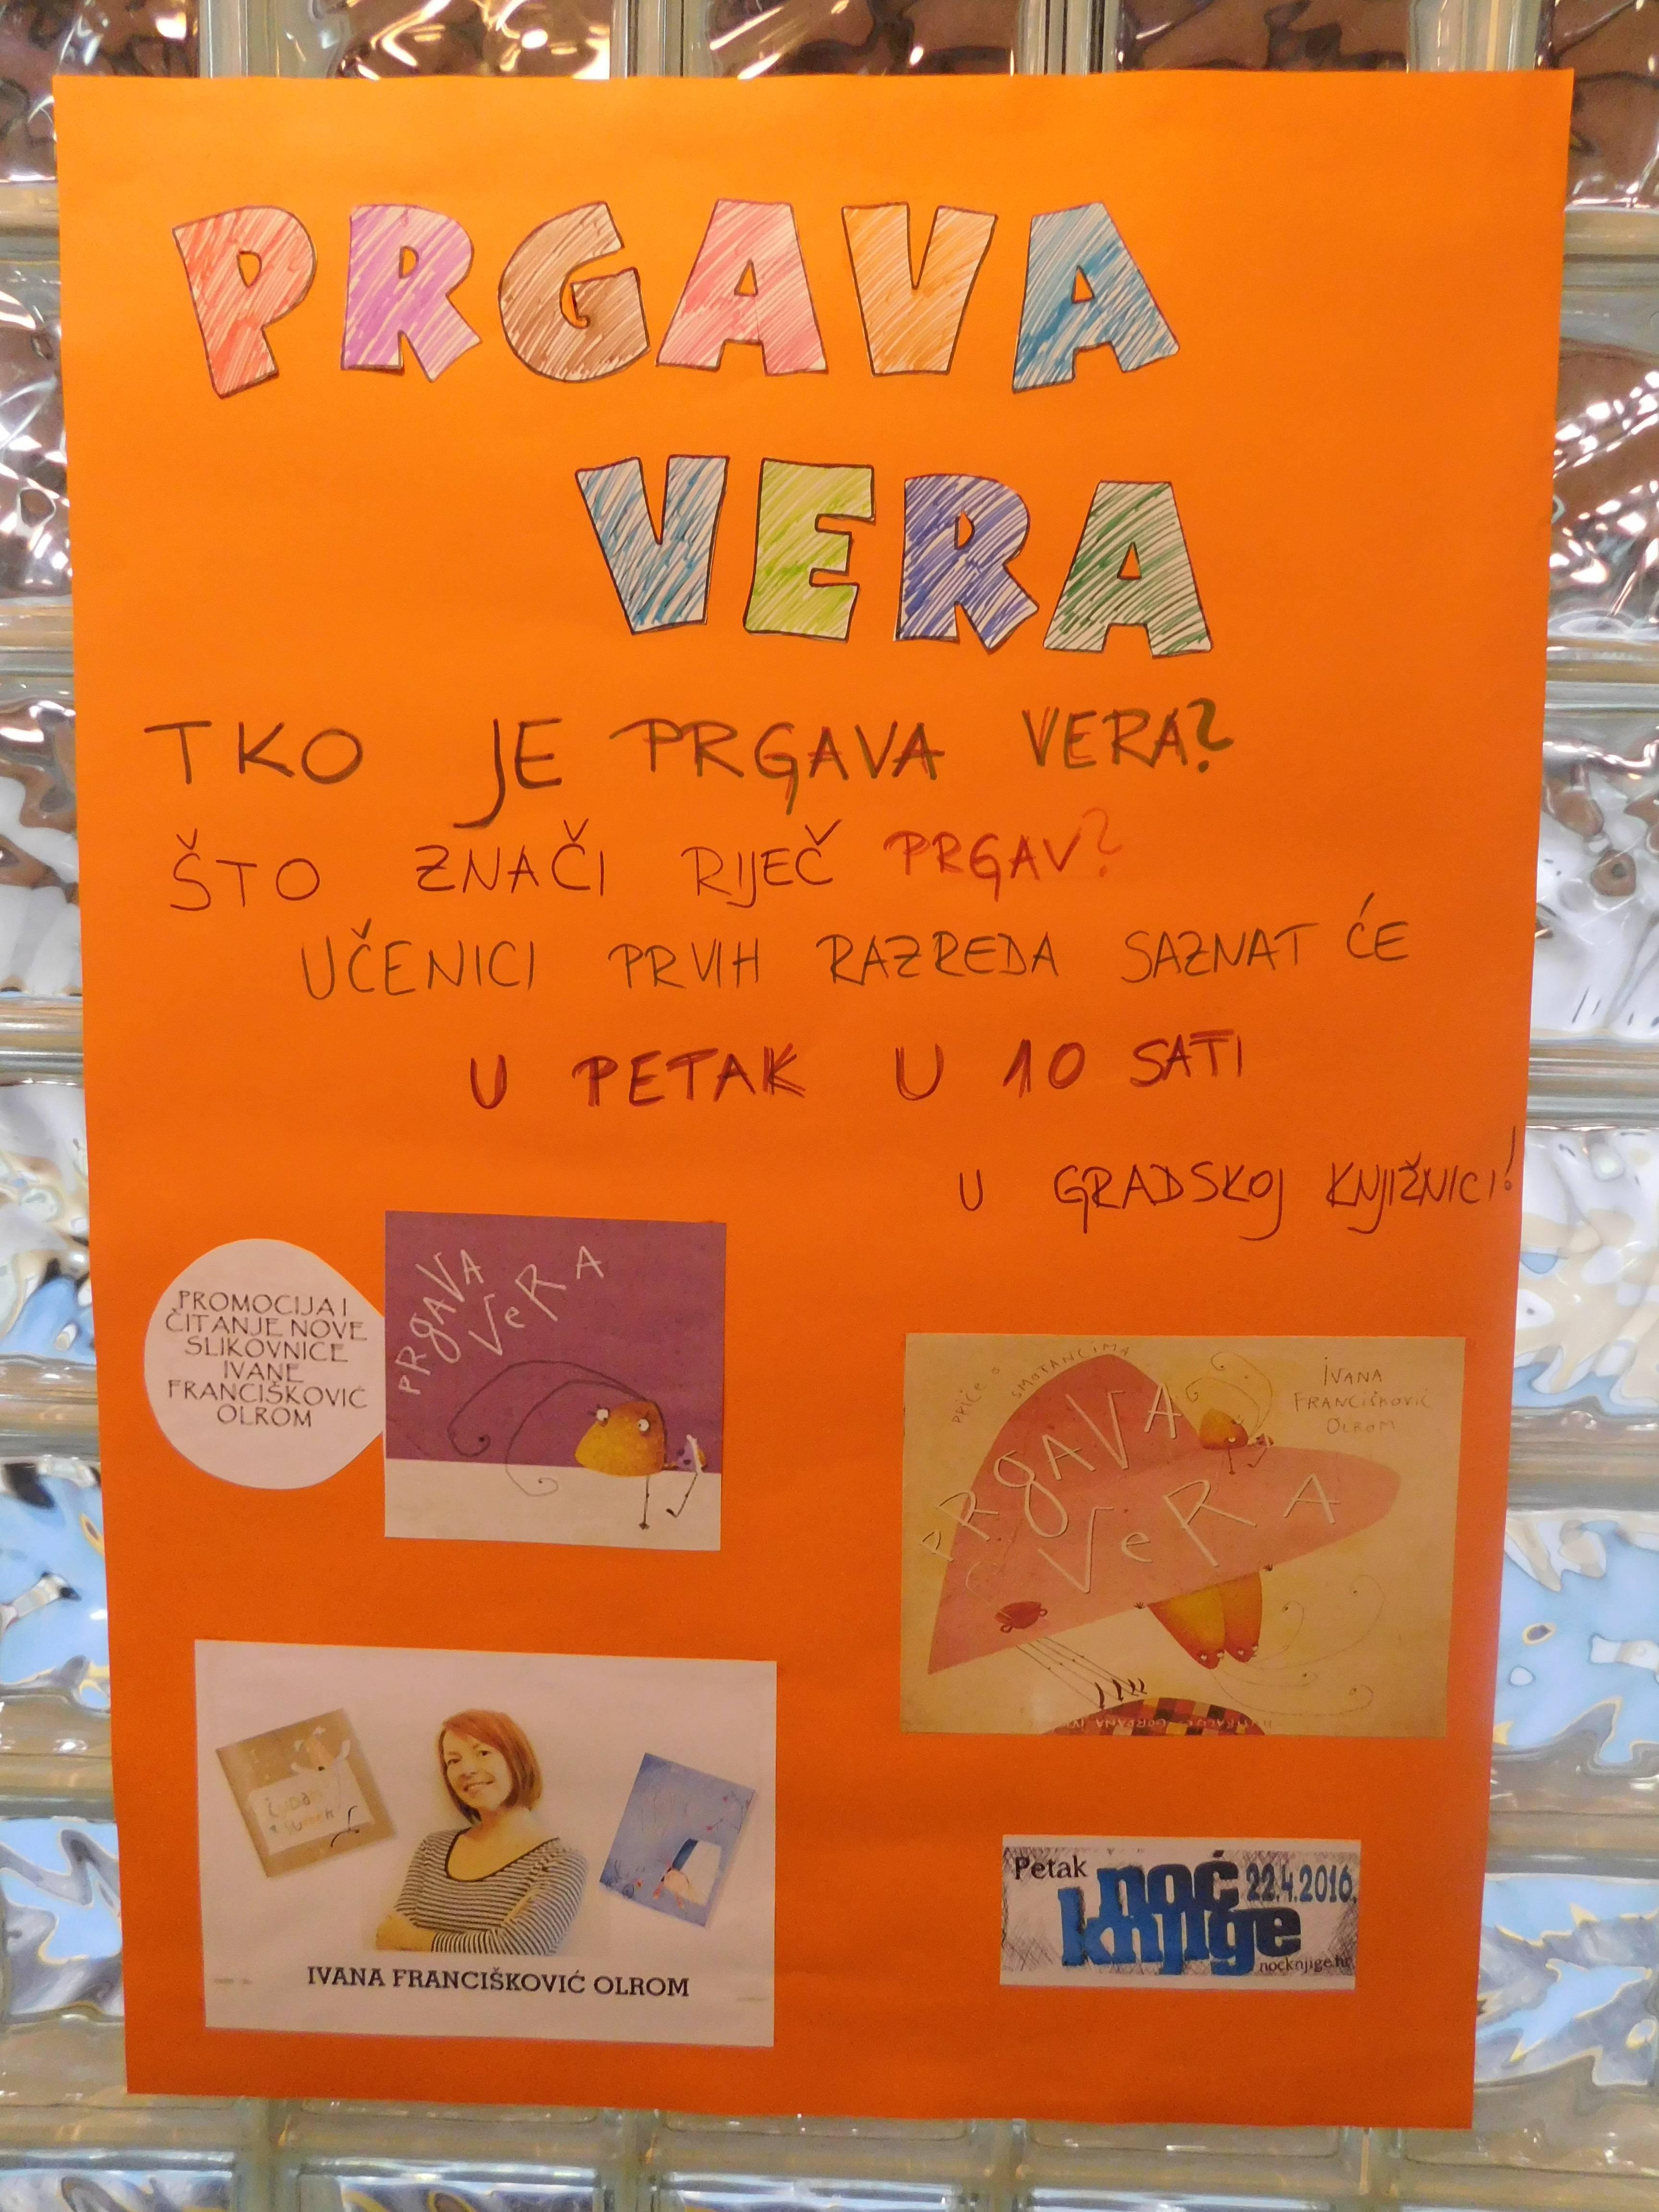 PRGAVA
VERA
TKO JE PRGAVA VERA?
ŠTO ZNAČI RIJEČ PRGAV?
UČENICI PRVIH RAZREDA SAZNAT ĆE
U PETAK U 10 SATI
U GRADSKOJ KNJIŽNICI!
PROMOCIJA I
ČITANJE NOVE
SLIKOVNICE
IVANE
FRANCIŠKOVIĆ
OLROM
PRgAVA
VeRA
PRIČE O SMOTANCIMA
IVANA
FRANCIŠKOVIĆ
OLROM
PRgAVA
VeRA
GORDANA
IVANA FRANCIŠKOVIĆ OLROM
Petak noć 22.4.2016.
knjige
nocknjige.hr